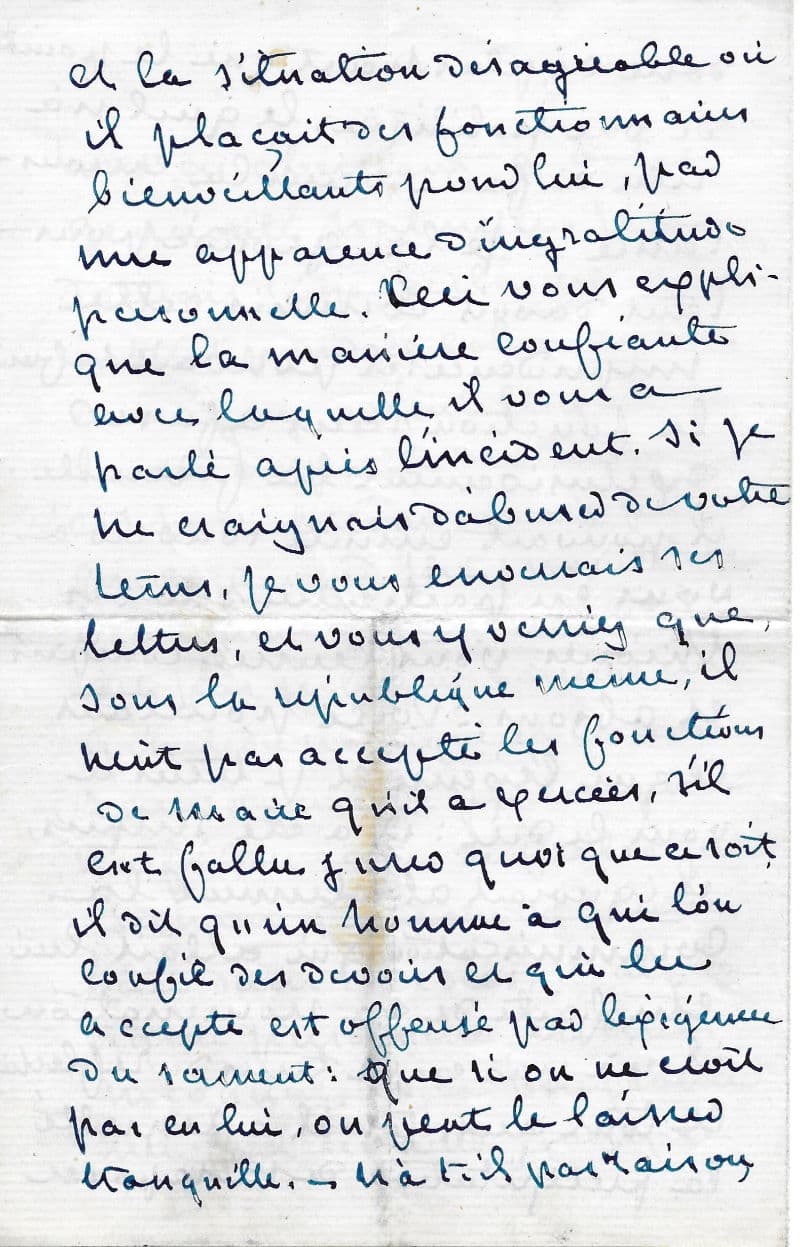 et la situation désagréable où
il plaçait des fonctionnaires
bienveillants pour lui, par
une apparence d'ingratitude
personnelle. Ceci vous expli-
que la manière confiante
avec laquelle il vous a
parlé après l'incident. Si je
ne craignais d'abuser de votre
tems, je vous enverrais ses
lettres, et vous y verriez que,
sous la république même, il
n'eût pas accepté les fonctions
de maire qu'il a exercées, s'il
eut fallu jurer quoi que ce soit,
il dit qu'un homme à qui l'on
confie des devoirs et qui les
accepte est offensé par l'exigence
du serment : que si on ne croit
pas en lui, on peut le laisser
tranquille. — N'a t-il pas raison,